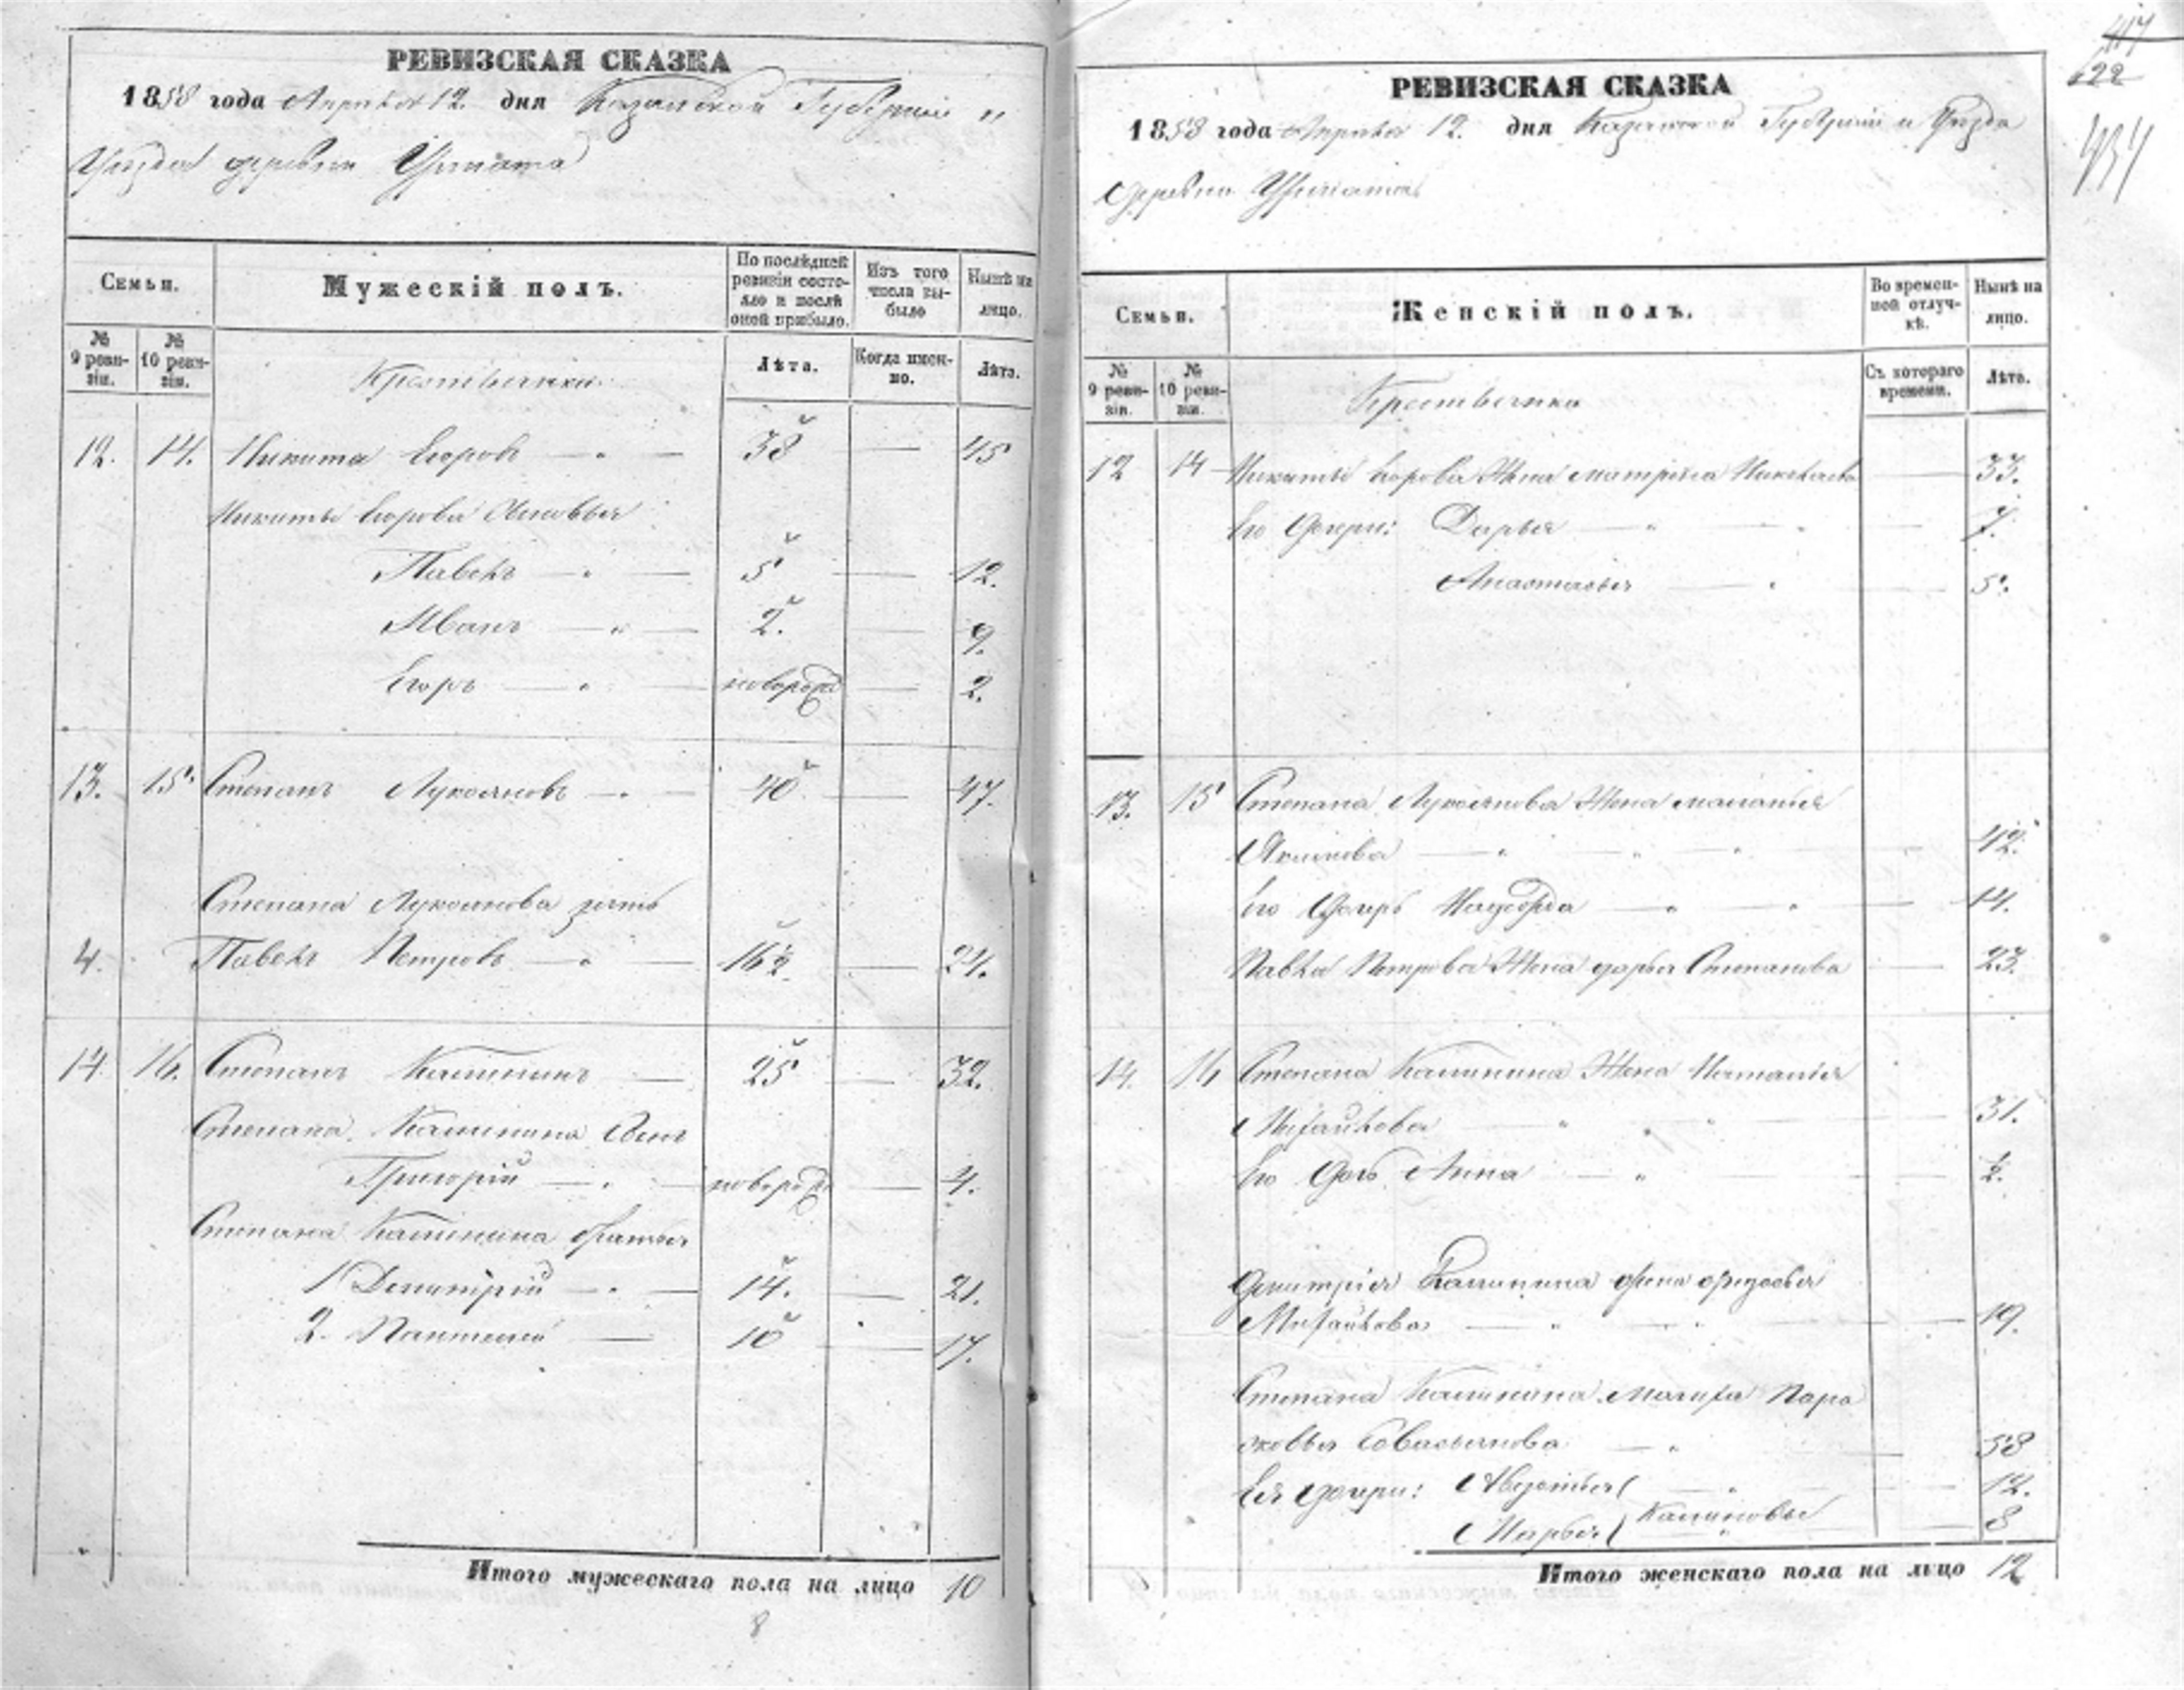 РЕВИЗСКАЯ СКАЗКА
1858 года Апреля 12. дня Казанской Губернии и
Уезда деревни
Семьи.
Мужескій полъ.
По послѣдней ревизіи состояло и послѣ оной прибыло.
Изъ того числа выбыло
Нынѣ на лицо.
№ 9 ревизіи.
№ 10 ревизіи.
Крестьянки
Лѣта.
Когда именно.
Лѣта.
12. 14. Никита Егоровъ 38 45
Никиты Егорова Сыновья
Павелъ 5 12.
Иванъ 2. 9.
Егоръ новорожд 2.
13. 15. Степанъ Лукояновъ 40 47.
Степана Лукоянова зять
4. Павелъ Петровъ 16½ 24.
14. 16. Степанъ Калининъ 25 32.
Степана Калинина Сынъ
Григорій новорожд 4.
Степана Калинина братья
1 Димитрій 14. 21.
2. Пантелей 10 17.
Итого мужескаго пола на лицо 10
8
117
122
434
РЕВИЗСКАЯ СКАЗКА
1858 года Апреля 12. дня Казанской Губерніи и Уезда
Деревни
Семьи.
Женскій полъ.
Во временной отлучкѣ.
Нынѣ на лицо.
№ 9 ревизіи.
№ 10 ревизіи.
Крестьянки
Съ котораго времени.
Лѣта.
12 14 Никиты Егорова Жена Матрена Николаева 33.
Его Дочери: Дарья 7.
Анастасья 5.
13. 15 Степана Лукоянова Жена Маланья
Якимова 42.
Его Дочерь Надежда 14.
Павла Петрова Жена дарья Степанова 23.
14. 16 Степана Калинина Жена Наталья
Михайлова 31.
Его Дочь Анна ½.
Дмитрія Калинина жена
Михайлова 19.
Степана Калинина Мачиха Пара
сковья Савастьянова 58
Ея дочери: Авдотья 12.
Марья Калиновы 8
Итого женскаго пола на лицо 12